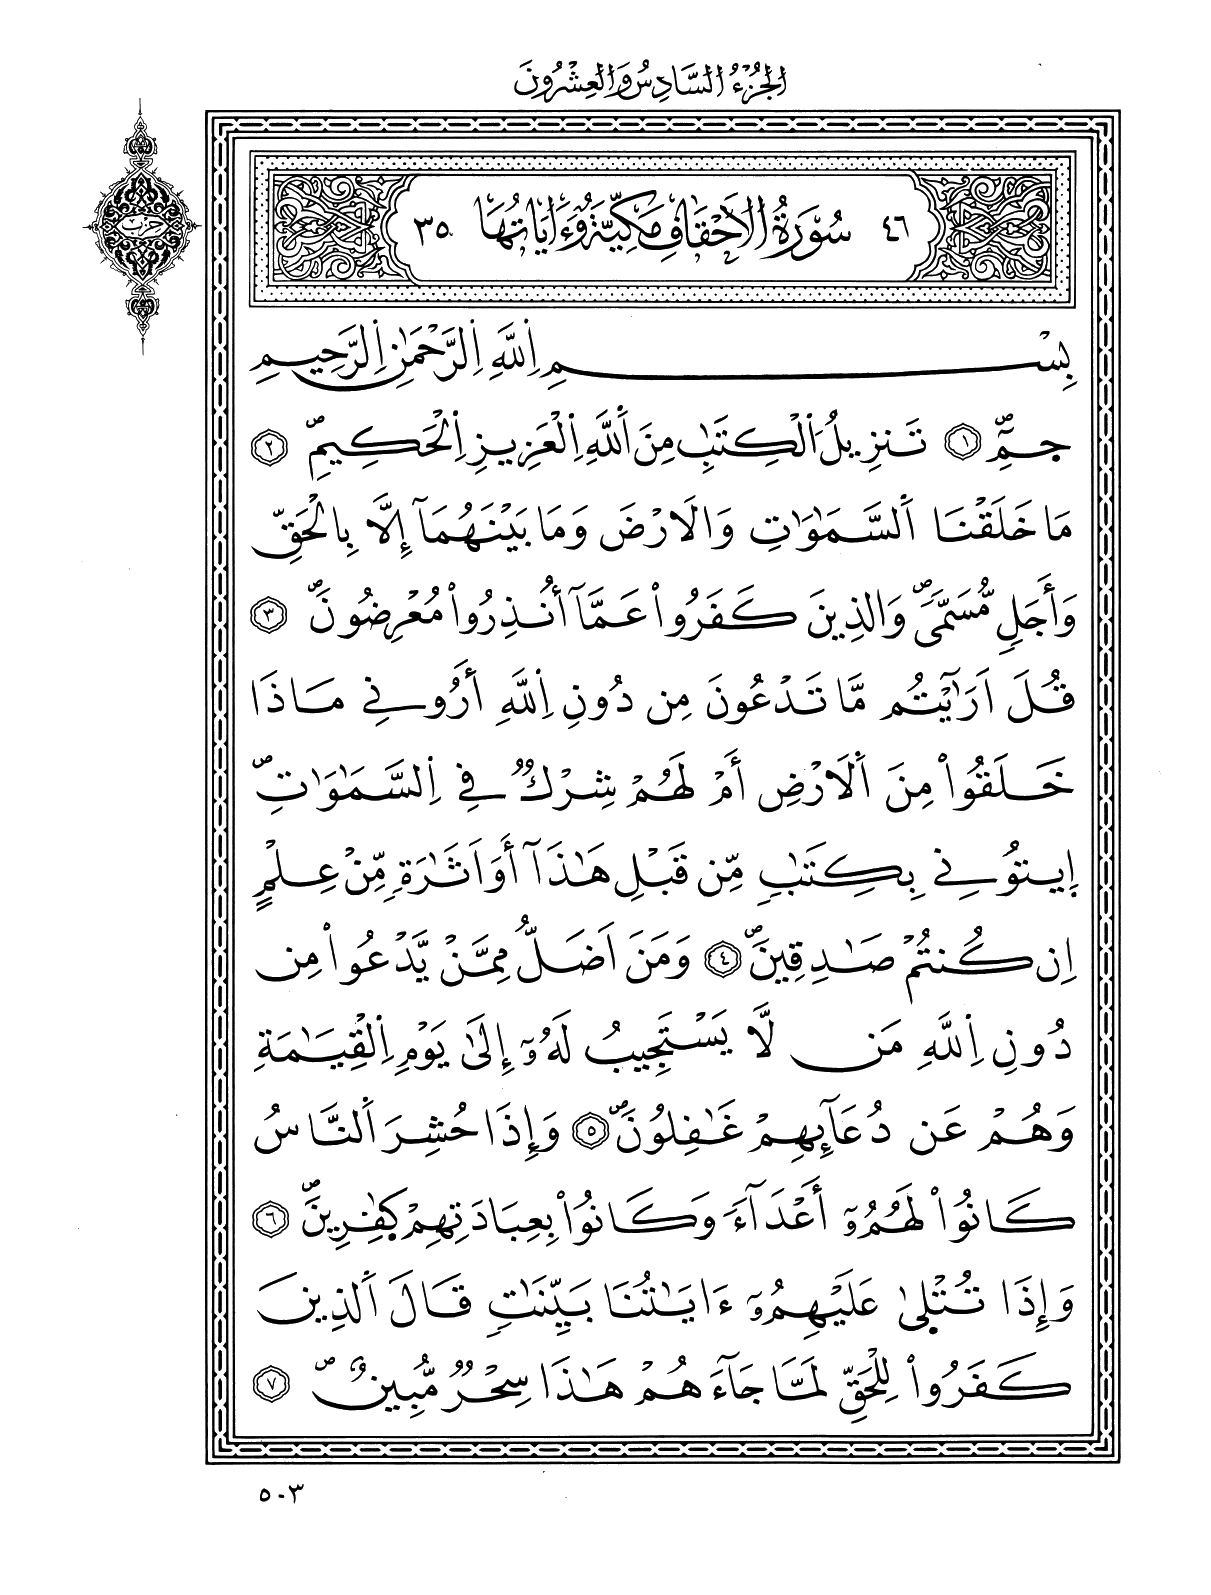 الجزء السادس والعشرون
حزب
٤٦ سُورَةُ الَاحْقَافِ مَكِّيَّة وَءَايَاتُهَا ٣٥
بِسْمِ اِللَّهِ اِلرَّحْمَٰنِ اِلرَّحِيمِ
حمِٓۖ ١ تَنزِيلُ اُلْكِتَٰبِ مِنَ اَللَّهِ اِلْعَزِيزِ اِلْحَكِيمِۖ ٢
مَا خَلَقْنَا اَلسَّمَٰوَٰتِ وَالَارْضَ وَمَا بَيْنَهُمَآ إِلَّا بِالْحَقِّ
وَأَجَلٖ مُّسَمّيٗۖ وَالذِينَ كَفَرُواْ عَمَّآ أُنذِرُواْ مُعْرِضُونَۖ ٣
قُلَ اَرَٰيْتُم مَّا تَدْعُونَ مِن دُونِ اِللَّهِ أَرُونِے مَاذَا
خَلَقُواْ مِنَ اَلَارْضِ أَمْ لَهُمْ شِرْكٞ فِے اِلسَّمَٰوَٰتِۖ
اِيتُونِے بِكِتَٰبٖ مِّن قَبْلِ هَٰذَآ أَوَ اَثَٰرَةٖ مِّنْ عِلْمٍ
اِن كُنتُمْ صَٰدِقِينَۖ ٤ وَمَنَ اَضَلُّ مِمَّنْ يَّدْعُواْ مِن
دُونِ اِللَّهِ مَن لَّا يَسْتَجِيبُ لَهُۥٓ إِلَىٰ يَوْمِ اِلْقِيَٰمَةِ
وَهُمْ عَن دُعَآئِهِمْ غَٰفِلُونَۖ ٥ وَإِذَا حُشِرَ اَلنَّاسُ
كَانُواْ لَهُمُۥٓ أَعْدَآءٗ وَكَانُواْ بِعِبَادَتِهِمْ كٰ۪فِرِينَۖ ٦
وَإِذَا تُتْل۪ىٰ عَلَيْهِمُۥٓ ءَايَٰتُنَا بَيِّنَٰتٖ قَالَ اَلذِينَ
كَفَرُواْ لِلْحَقِّ لَمَّا جَآءَهُمْ هَٰذَا سِحْرٞ مُّبِينٌۖ ٧
٥٠٣